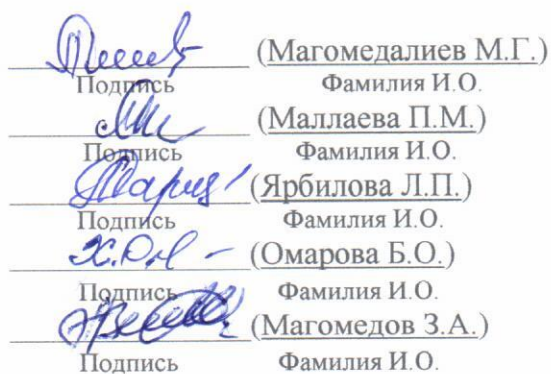 (Магомедалиев М.Г.)
Подпись Фамилия И.О.
(Маллаева П.М.)
Подпись Фамилия И.О.
(Ярбилова Л.П.)
Подпись Фамилия И.О.
(Омарова Б.О.)
Подпись Фамилия И.О.
(Магомедов З.А.)
Подпись Фамилия И.О.